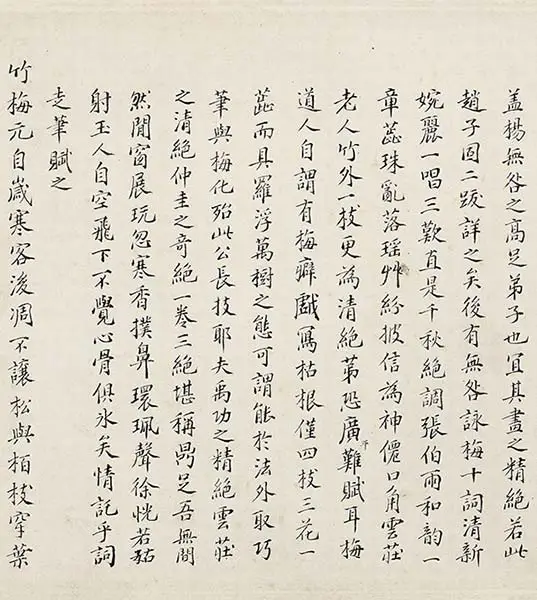 盖楊無咎之高足弟子也冝其畫之精絕若此
趙子固二跋詳之矣後有無咎詠梅十詞清新
婉麗一唱三歎直是千秋絕調張伯雨和韵一
章蕊珠亂落瑶艸紛披信為神僊口角雲莊
老人竹外一枝更為清絕第恐廣平難賦耳梅
道人自謂有梅癖戲寫枯根僅四枝三花一
蕊而具羅浮萬樹之態可謂能於法外取巧
筆與梅化殆此公長技耶夫禹功之精絕雲莊
之清絕仲圭之奇絕一卷三絕堪稱鼎足吾無間
然閒窗展玩忽寒香撲鼻環珮聲徐恍若菇
射玉人自空飛下不覺心骨俱氷矣情託乎詞
走筆賦之
竹梅元自歲寒容後凋不讓松與柏枝穿葉